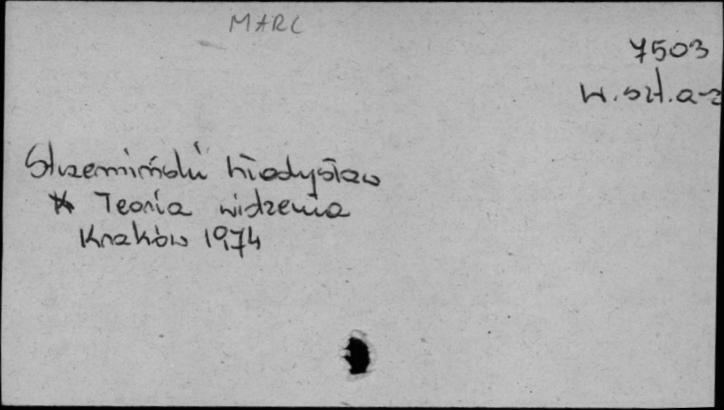 MARC
7503
W. szt. a-z
Strzemiński Władysław
Teoria widzenia
Kraków 1974